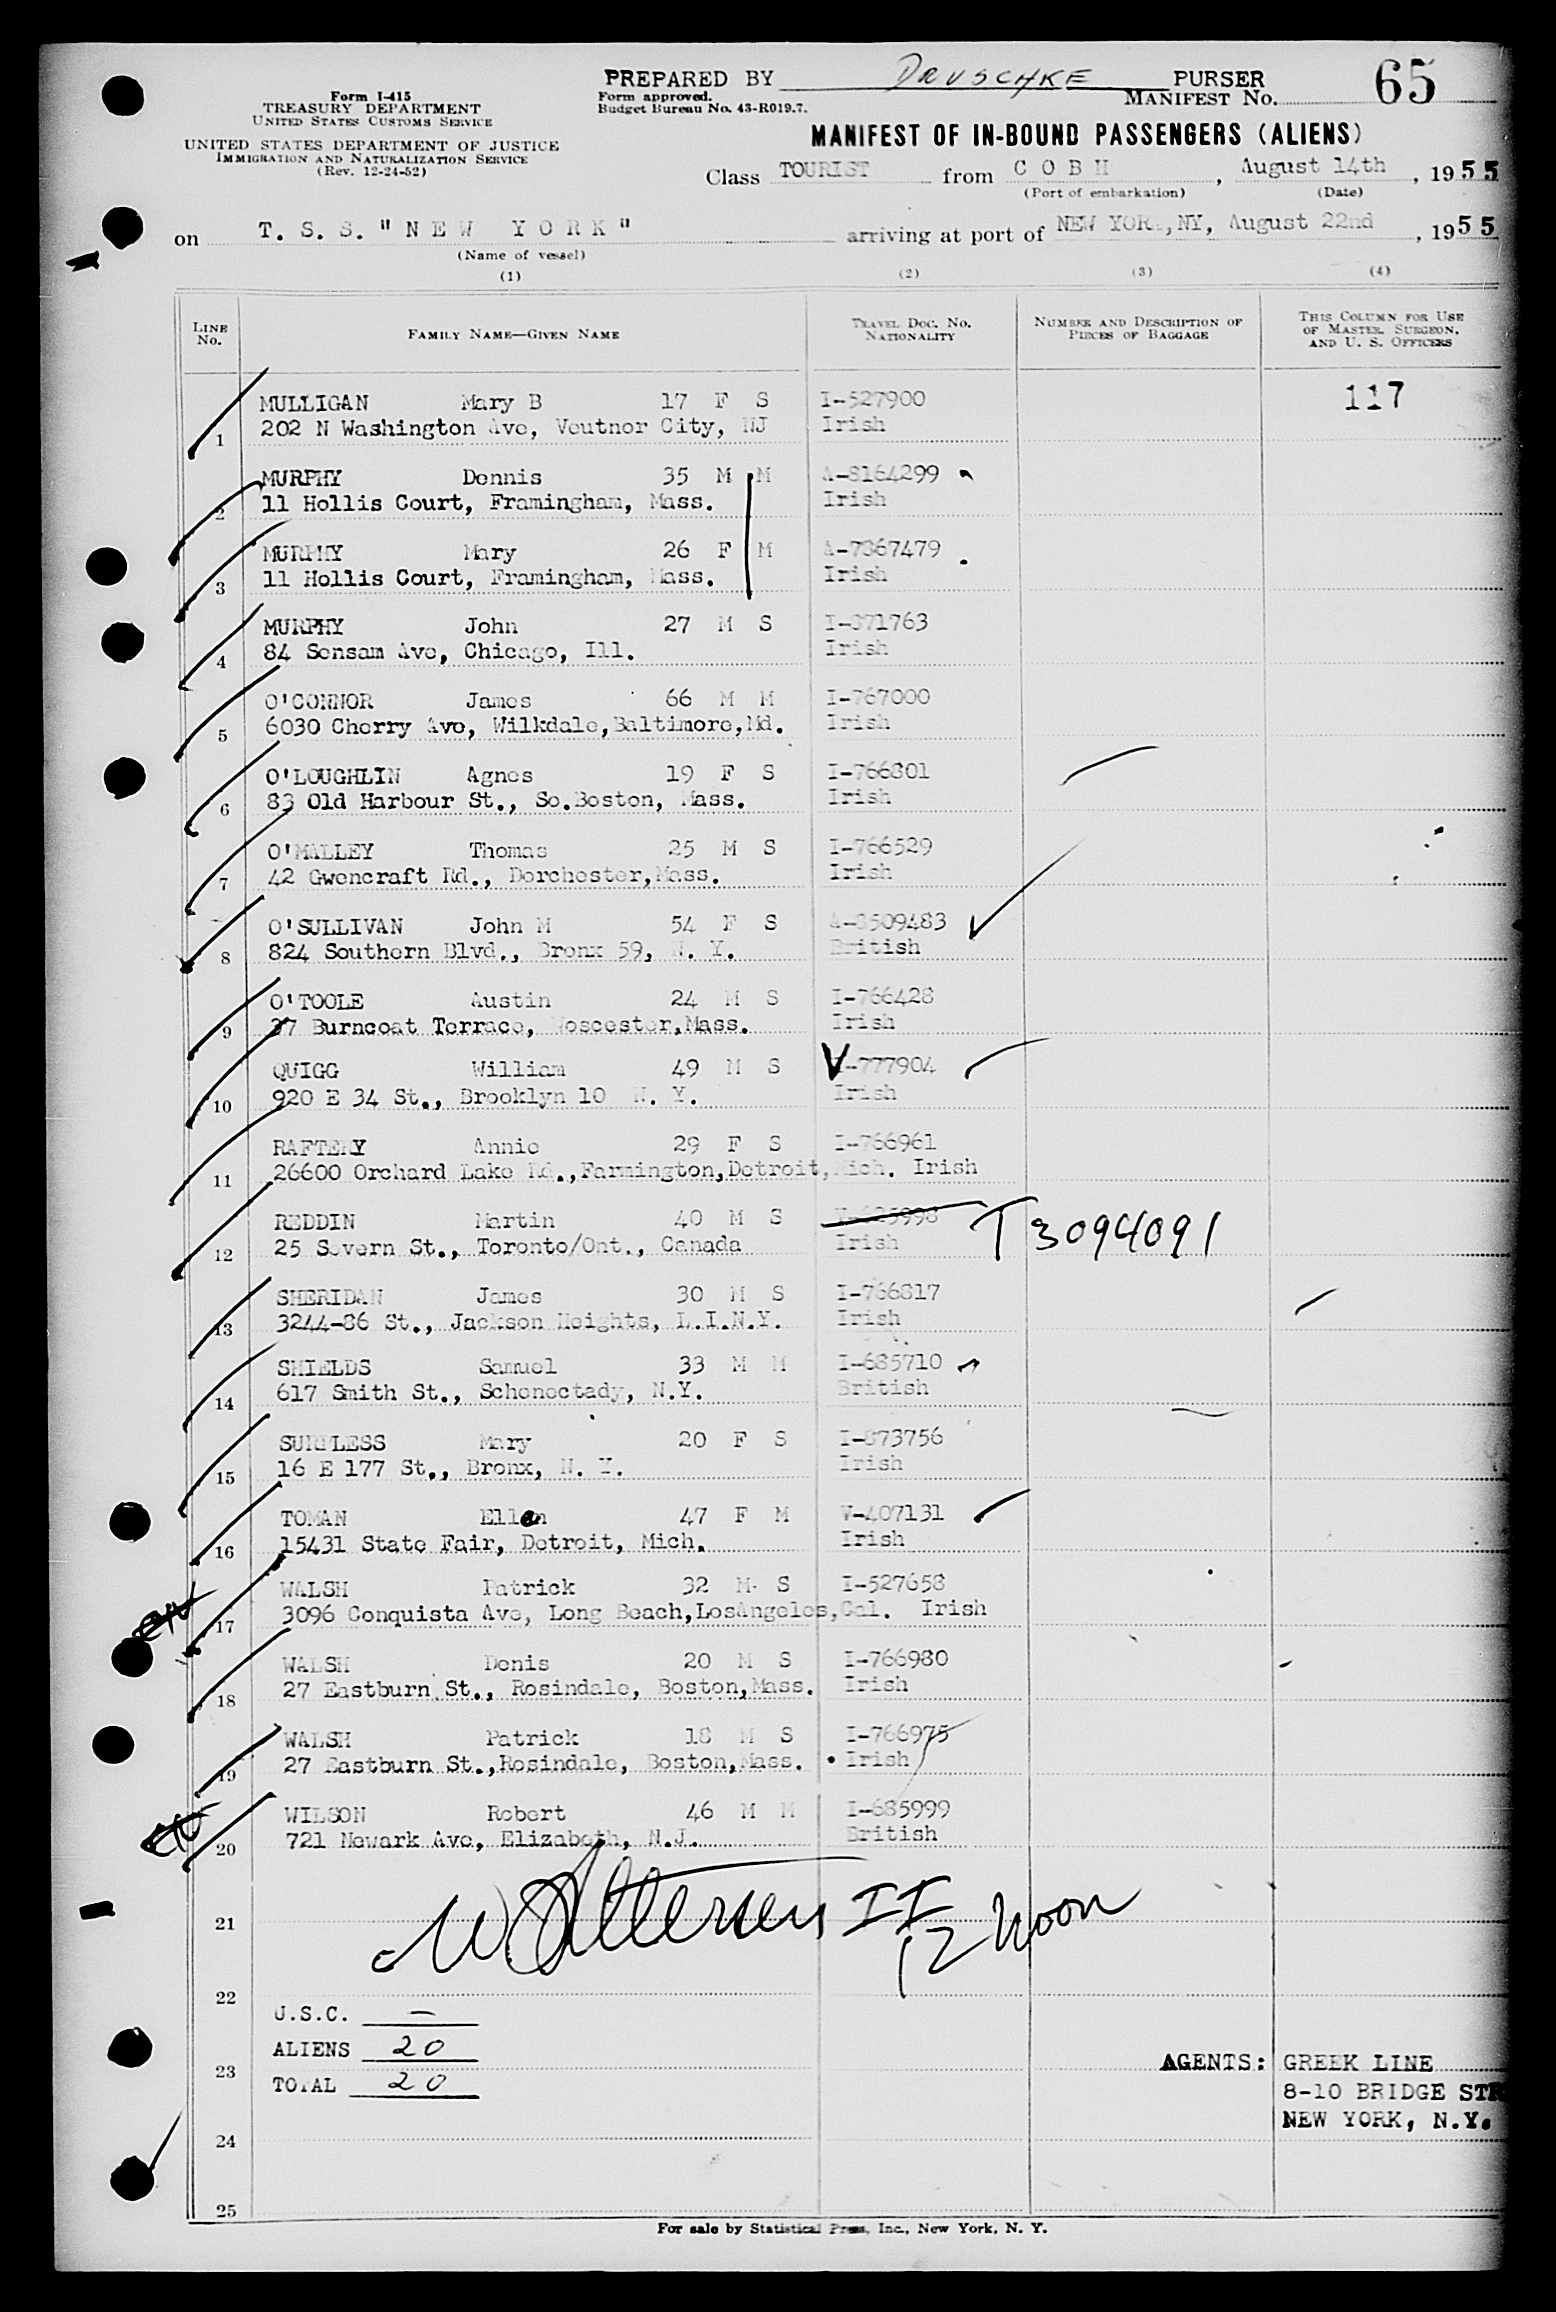 PREPARED BY DRUSCHKE PURSER
Form approved.
Budget Bureau No. 43-R019.7.
MANIFEST No. 65
Form I-415
TREASURY DEPARTMENT
UNITED STATES CUSTOMS SERVICE
UNITED STATES DEPARTMENT OF JUSTICE
IMMIGRATION AND NATURALIZATION SERVICE
(Rev. 12-24-52)
MANIFEST OF IN-BOUND PASSENGERS (ALIENS)
Class TOURIST from C O B H, August 14th, 1955
(Port of embarkation) (Date)
on T. S. S. "N E W Y O R K" arriving at port of NEW YORK, NY, August 22nd, 1955
(Name of vessel)
(1) (2) (3) (4)
LINE No. FAMILY NAME—GIVEN NAME TRAVEL DOC. No. NATIONALITY NUMBER AND DESCRIPTION OF PIECES OF BAGGAGE THIS COLUMN FOR USE OF MASTER, SURGEON, AND U. S. OFFICERS
MULLIGAN Mary B 17 F S I-527900 117
1 202 N Washington Ave, Veutnor City, NJ Irish
MURPHY Dennis 35 M M A-8164299
2 11 Hollis Court, Framingham, Mass. Irish
MURPHY Mary 26 F M A-7867479
3 11 Hollis Court, Framingham, Mass. Irish
MURPHY John 27 M S I-371763
4 84 Sensam Ave, Chicago, Ill. Irish
O'CONNOR James 66 M M I-767000
5 6030 Cherry Ave, Wilkdale,Baltimore,Md. Irish
O'LOUGHLIN Agnes 19 F S I-766801
6 83 Old Harbour St., So.Boston, Mass. Irish
O'MALLEY Thomas 25 M S I-766529
7 42 Gwencraft Rd., Dorchester,Mass. Irish
O'SULLIVAN John M 54 F S A-8509483
8 824 Southern Blvd., Bronx 59, N. Y. British
O'TOOLE Austin 24 M S I-766428
9 37 Burncoat Terrace, Woscester,Mass. Irish
QUIGG William 49 M S V-777904
10 920 E 34 St., Brooklyn 10 N. Y. Irish
RAFTERY Annie 29 F S I-766961
11 26600 Orchard Lake Rd.,Farmington,Detroit,Mich. Irish
REDDIN Martin 40 M S V-625998 T 3094091
12 25 Severn St., Toronto/Ont., Canada Irish
SHERIDAN James 30 M S I-766817
13 3244-86 St., Jackson Heights, L.I.N.Y. Irish
SHIELDS Samuel 33 M M I-685710
14 617 Smith St., Schenectady, N.Y. British
SURPLESS Mary 20 F S I-873756
15 16 E 177 St., Bronx, N. Y. Irish
TOMAN Ellen 47 F M V-407131
16 15431 State Fair, Detroit, Mich. Irish
WALSH Patrick 32 M S I-527658
17 3096 Conquista Ave, Long Beach,LosAngeles,Cal. Irish
WALSH Denis 20 M S I-766980
18 27 Eastburn St., Rosindale, Boston,Mass. Irish
WALSH Patrick 18 M S I-766975
19 27 Eastburn St.,Rosindale, Boston,Mass. Irish
WILSON Robert 46 M M I-685999
20 721 Newark Ave, Elizabeth, N.J. British
21 II 12 Noon
22
U.S.C. —
ALIENS 20
23
TOTAL 20
AGENTS: GREEK LINE
8-10 BRIDGE STR
NEW YORK, N.Y.
24
25
For sale by Statistical Press, Inc., New York, N. Y.